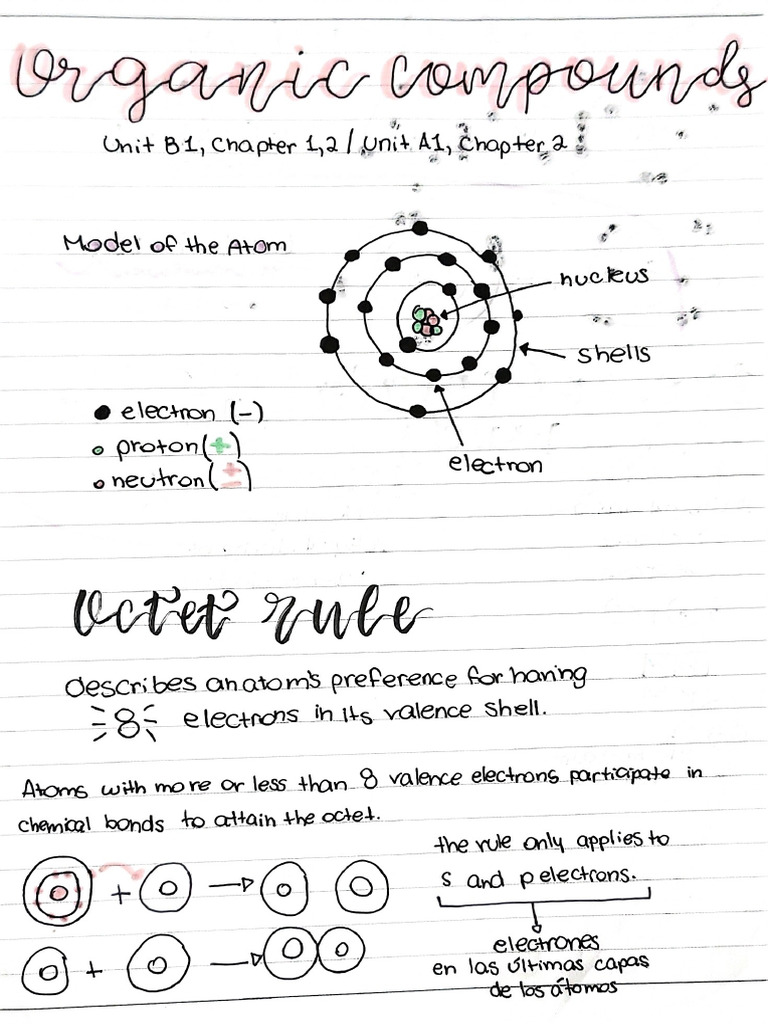 Organic compounds
Unit B1, Chapter 1,2 / Unit A1, Chapter 2
Model of the Atom
nucleus
shells
electron
electron (-)
proton (+)
neutron (±)
Octet rule
describes an atom's preference for having
8 electrons in its valence shell.
Atoms with more or less than 8 valence electrons participate in
chemical bonds to attain the octet.
the rule only applies to
s and p electrons.
+
+
electrones
en las últimas capas
de los átomos